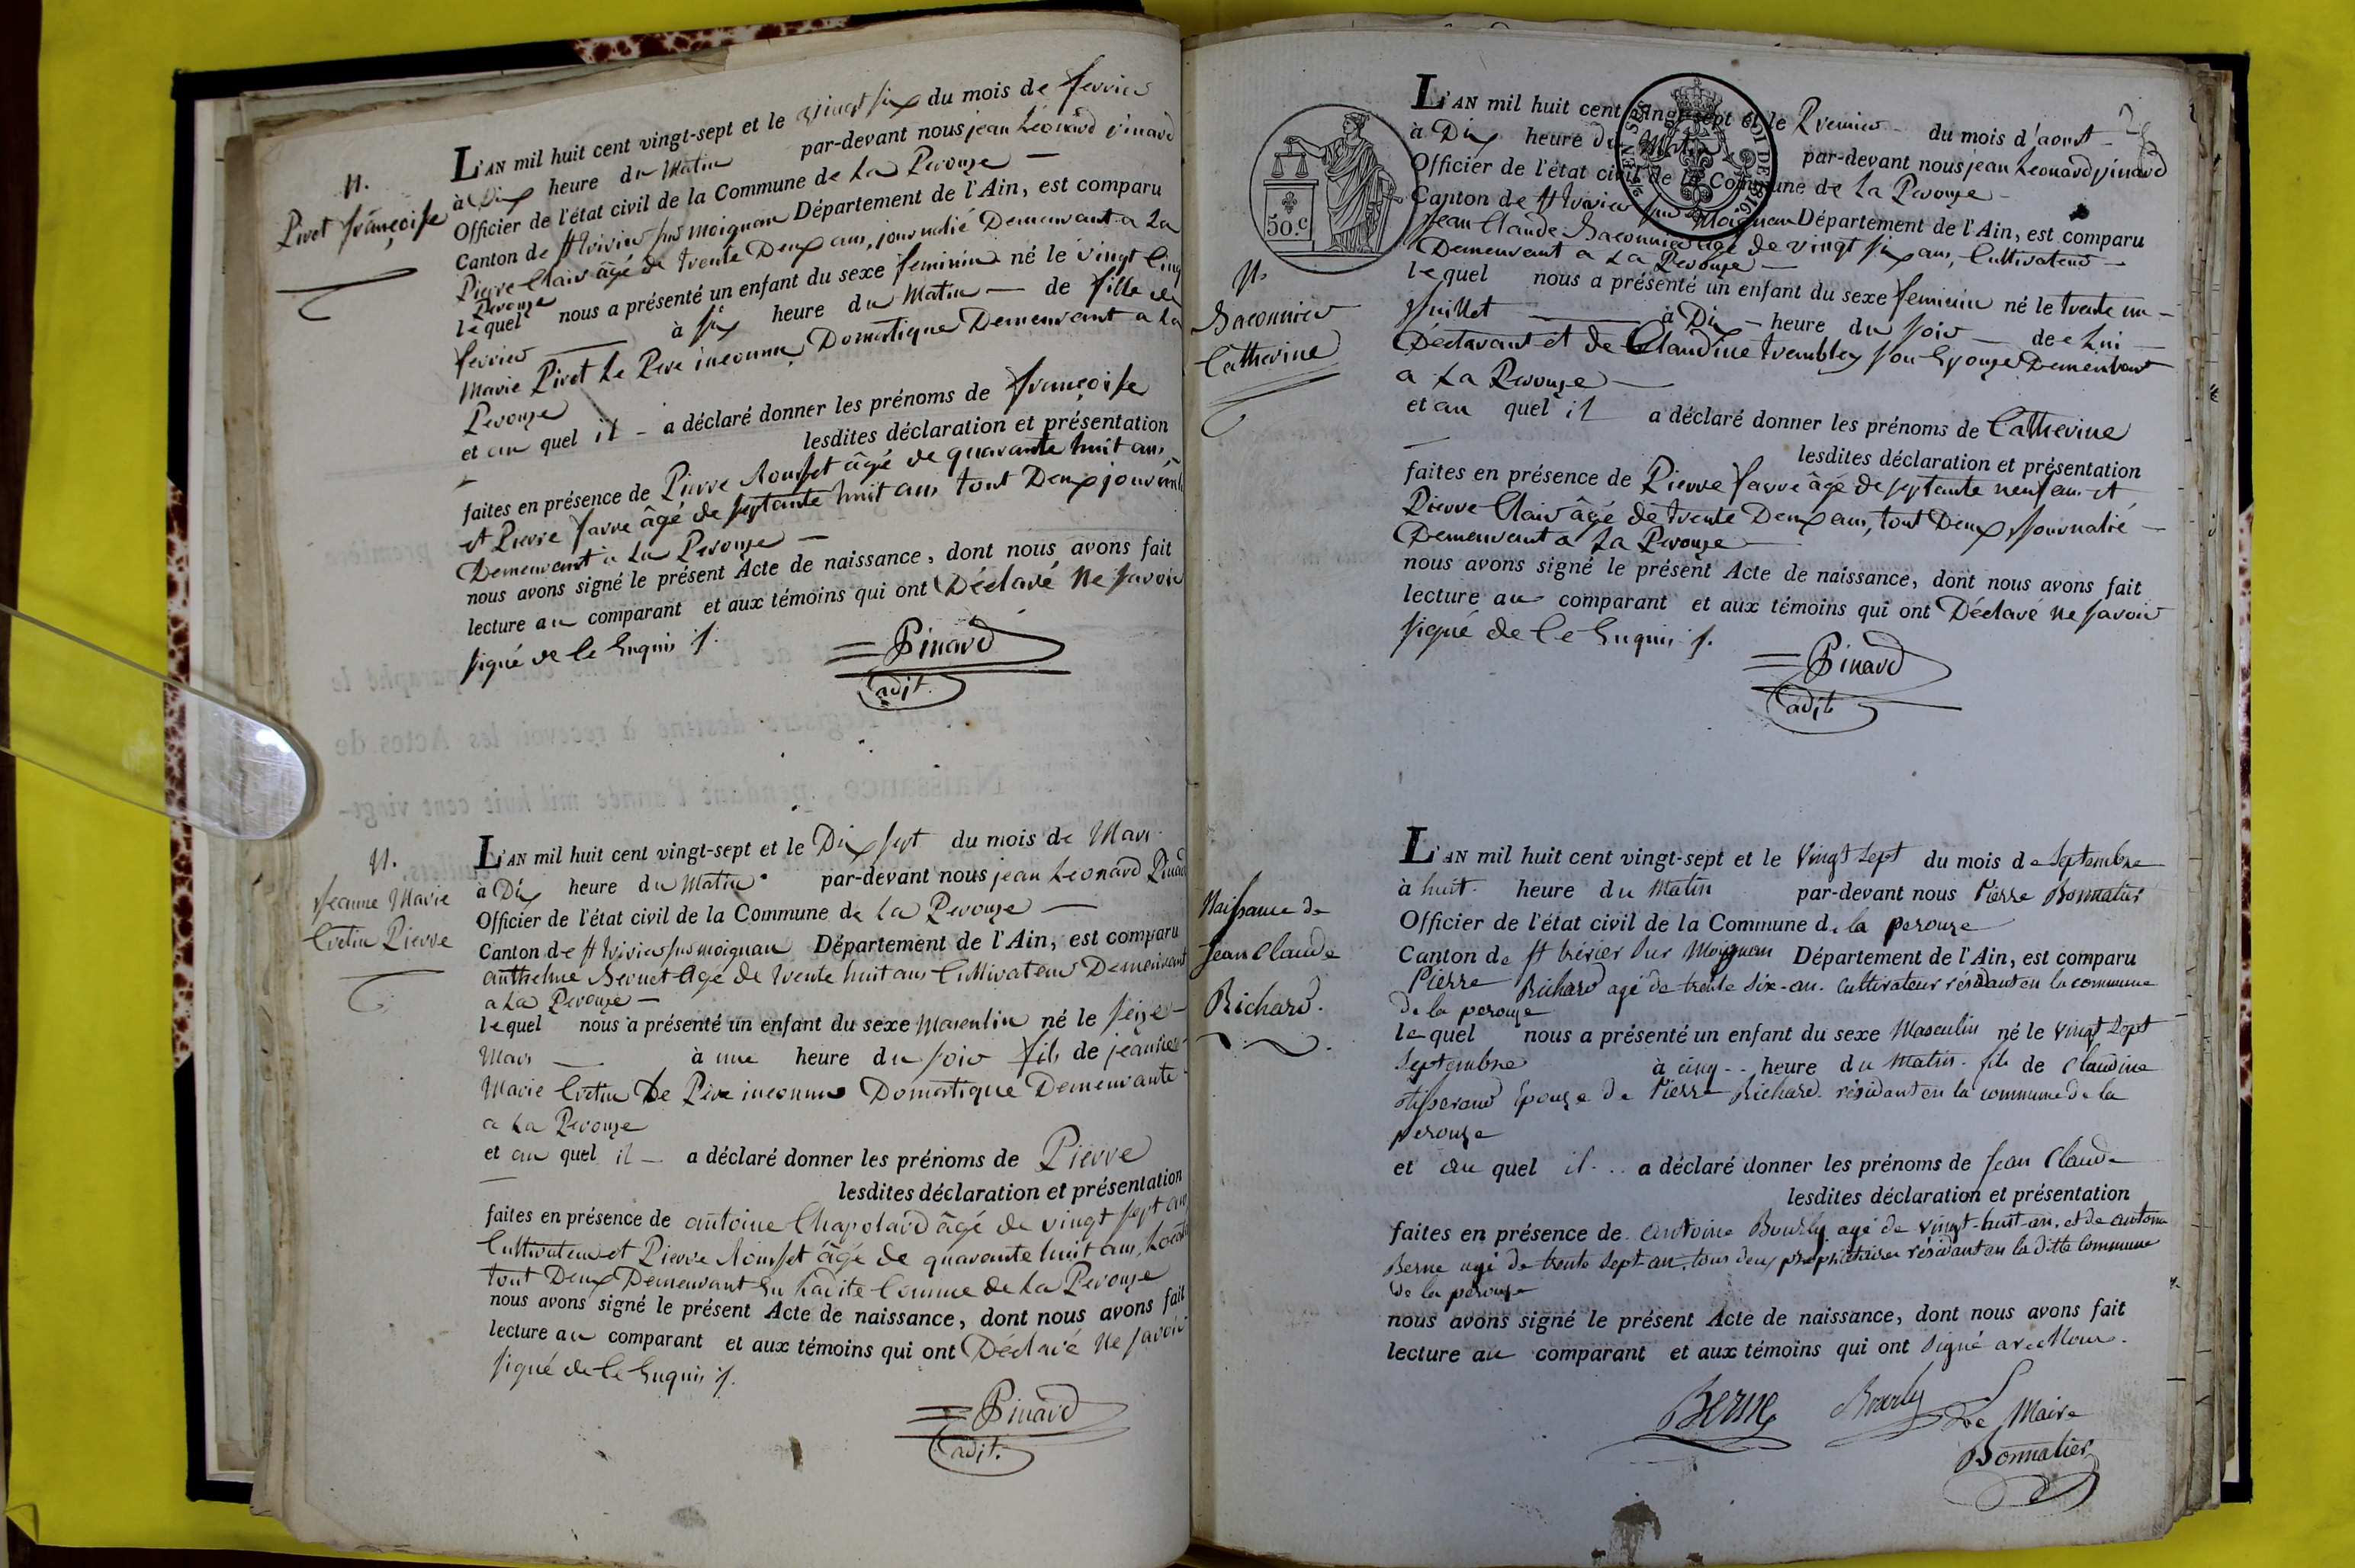 N.
Pivet françoise
L'AN mil huit cent vingt-sept et le vingt six du mois de fevrier
à Dix heure du Matin par-devant nous jean Léonard pinard
Officier de l'état civil de la Commune de La Perouze
Canton de St trivier sur moignan Département de l'Ain, est comparu
Pierre Clair âgé de trente Deux ans, journalié Demeurant a La
Perouze
lequel nous a présenté un enfant du sexe feminin né le vingt Cinq
fevrier à six heure du Matin de fille de
Marie Pivet Le Pere inconnu Domestique Demeurant a La
Perouze
et au quel il a déclaré donner les prénoms de françoise
lesdites déclaration et présentation
faites en présence de Pierre Rousset âgé de quarante huit ans,
et Pierre favre âgé de septante huit ans tout Deux
Demeurant a La Perouze
nous avons signé le présent Acte de naissance, dont nous avons fait
lecture au comparant et aux témoins qui ont Déclaré Ne savoir
signé de Ce Enquis /.
Pinard
adjt.
N.
Jeanne Marie
Cretin Pierre
L'AN mil huit cent vingt-sept et le Dix sept du mois de Mars
à Dix heure du Matin par-devant nous jean Leonard Pinard
Officier de l'état civil de la Commune de La Perouze
Canton de St trivier sur moignan Département de l'Ain, est comparu
anthelme Bernet Agé de trente huit ans Cultivateur Demeurant
a La Perouze
lequel nous a présenté un enfant du sexe Masculin né le seize
Mars à une heure du soir fils de jeanne
Marie Cretin De Pere inconnu Domestique Demeurante
a La Perouze
et au quel il a déclaré donner les prénoms de Pierre
lesdites déclaration et présentation
faites en présence de antoine Chapolard âgé de vingt sept ans
Cultivateur et Pierre Rousset âgé de quarante huit ans,
tout Deux Demeurant En Ladite Comune de La Perouze
nous avons signé le présent Acte de naissance, dont nous avons fait
lecture au comparant et aux témoins qui ont Déclaré Ne savoir
signé de Ce Enquis /.
Pinard
adjt.
50.C
N.
Saconnier
Catherine
L'AN mil huit cent vingt-sept et le Premier du mois d'aout
à Dix heure du Matin par-devant nous jean Leonard pinard
Officier de l'état civil de la Commune de La Perouze
Canton de St trivier sur Moignan Département de l'Ain, est comparu
Jean Claude Saconnier agé de vingt six ans, Cultivateur
Demeurant a La Perouze
lequel nous a présenté un enfant du sexe feminin né le trente un
Juillet à Dix heure du soir de Lui
Déclarant et de Claudine trembley son Epouze Demeurant
a La Perouze
et au quel il a déclaré donner les prénoms de Catherine
lesdites déclaration et présentation
faites en présence de Pierre favre âgé de septante neuf ans et
Pierre Clair âgé de trente Deux ans, tout Deux Journalié
Demeurant a La Perouze
nous avons signé le présent Acte de naissance, dont nous avons fait
lecture au comparant et aux témoins qui ont Déclaré Ne savoir
signé de Ce Enquis /.
Pinard
adjt
Naissance de
Jean Claude
Richard.
L'AN mil huit cent vingt-sept et le vingt sept du mois de Septembre
à huit heure du Matin par-devant nous Pierre Bonnatier
Officier de l'état civil de la Commune de la perouze
Canton de St trivier sur Moignan Département de l'Ain, est comparu
Pierre Richard agé de trente six-an. Cultivateur résidant en la commune
de la perouze
lequel nous a présenté un enfant du sexe Masculin né le vingt sept
Septembre à cinq heure du Matin fils de Claudine
épouze de Pierre Richard résidant en la commune de la
perouze
et au quel il a déclaré donner les prénoms de Jean Claude
lesdites déclaration et présentation
faites en présence de Antoine Bourly agé de vingt-huit-an. et de antoine
Berne agé de trente sept-an. tous deux propriétaires résidant en la ditte Commune
de la perouze
nous avons signé le présent Acte de naissance, dont nous avons fait
lecture au comparant et aux témoins qui ont signé avec Nous.
Berne Bourly Le Maire
Bonnatier